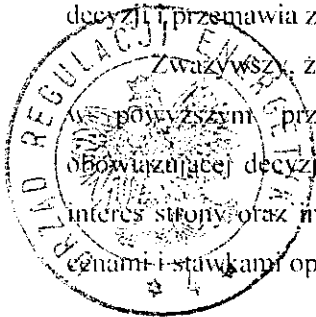 decyzji i przemawia z
Zważywszy, ż
w powyższym prz
obowiązującej decyzj
interes strony oraz
cenami i stawkami op
URZĄD REGULACJI ENERGETYKI
4